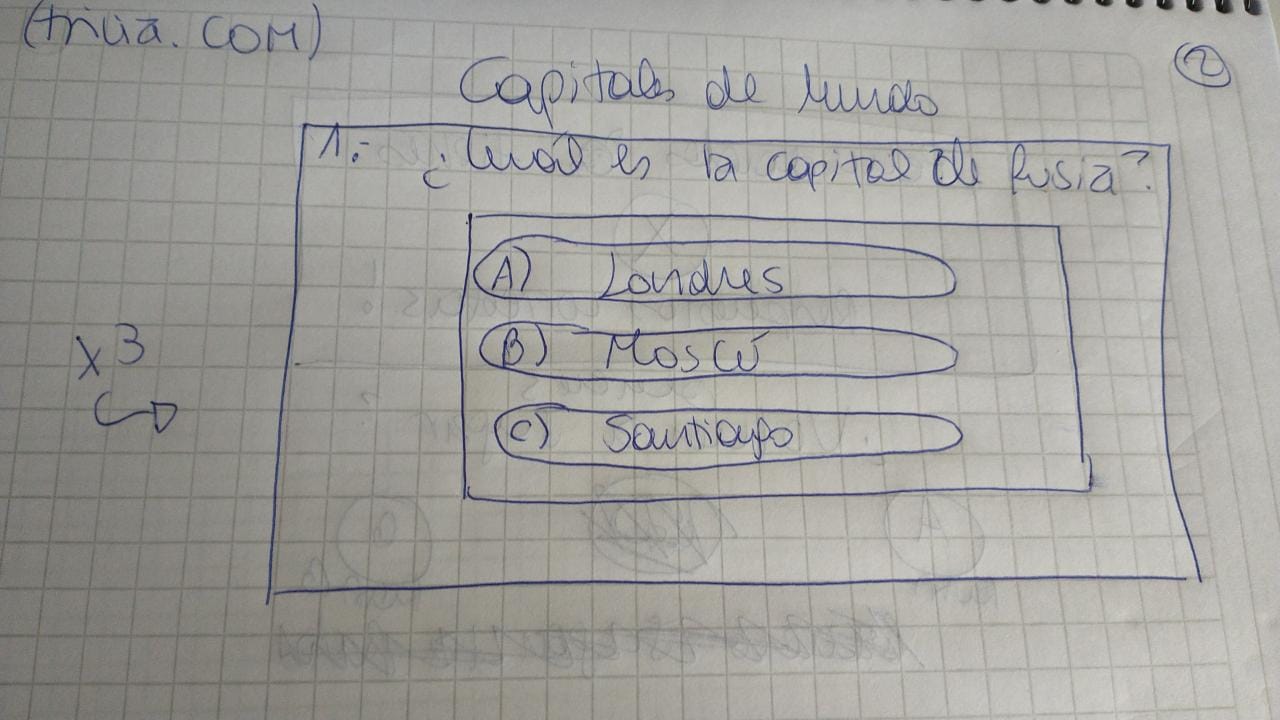 (trivia.COM)
2
Capitales de Mundo
1.- ¿Cuál es la capital de Rusia?
A) Londres
B) Moscú
C) Santiago
x3